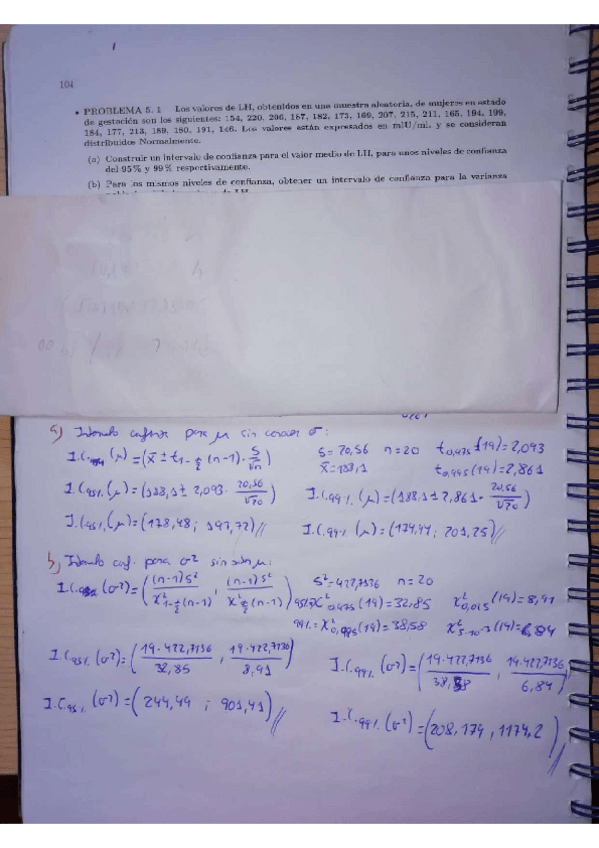 104
• PROBLEMA 5. 1 Los valores de LH, obtenidos en una muestra aleatoria, de mujeres en estado
de gestación son los siguientes: 154, 220, 206, 187, 182, 173, 169, 207, 215, 211, 165, 194, 199,
184, 177, 213, 189, 180, 191, 146. Los valores están expresados en mIU/ml, y se consideran
distribuidos Normalmente.
(a) Construir un intervalo de confianza para el valor medio de LH, para unos niveles de confianza
del 95 % y 99 % respectivamente.
(b) Para los mismos niveles de confianza, obtener un intervalo de confianza para la varianza
a) para μ sin conocer σ:
(μ) = (x̄ ± t1-α/2 (n-1) · S/√n) S = 20,56 n = 20 t0,975 (19) = 2,093
x̄ = 188,1 t0,995 (19) = 2,861
I.C95% (μ) = (188,1 ± 2,093 · 20,56/√20) I.C99% (μ) = (188,1 ± 2,861 · 20,56/√20)
I.C95% (μ) = (178,48 ; 197,72)// I.C.99% (μ) = (174,94 ; 201,25)//
b) conf. para σ2 sin saber μ:
(σ2) = ((n-1)S2/χ21-α/2 (n-1) , (n-1)S2/χ2α/2 (n-1)) S2 = 422,7136 n = 20
95% = χ20,975 (19) = 32,85 χ20,025 (19) = 8,91
99% = χ20,995 (19) = 38,58 χ25·10-3 (19) = 6,84
I.C95% (σ2) = (19·422,7136/32,85 , 19·422,7136/8,91) I.C99% (σ2) = (19·422,7136/38,58 , 19·422,7136/6,84)
I.C95% (σ2) = (244,49 ; 901,41)// I.C.99% (σ2) = (208,174 , 1174,2)//